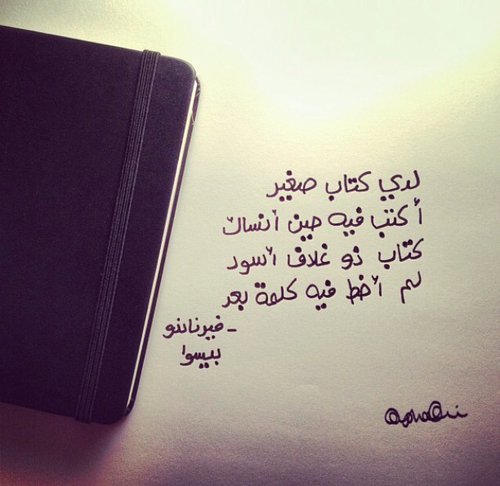 لدي كتاب صغير
أكتب فيه حين أنساك
كتاب ذو غلاف أسود
لم أخط فيه كلمة بعد
- فيرناندو
بيسوا